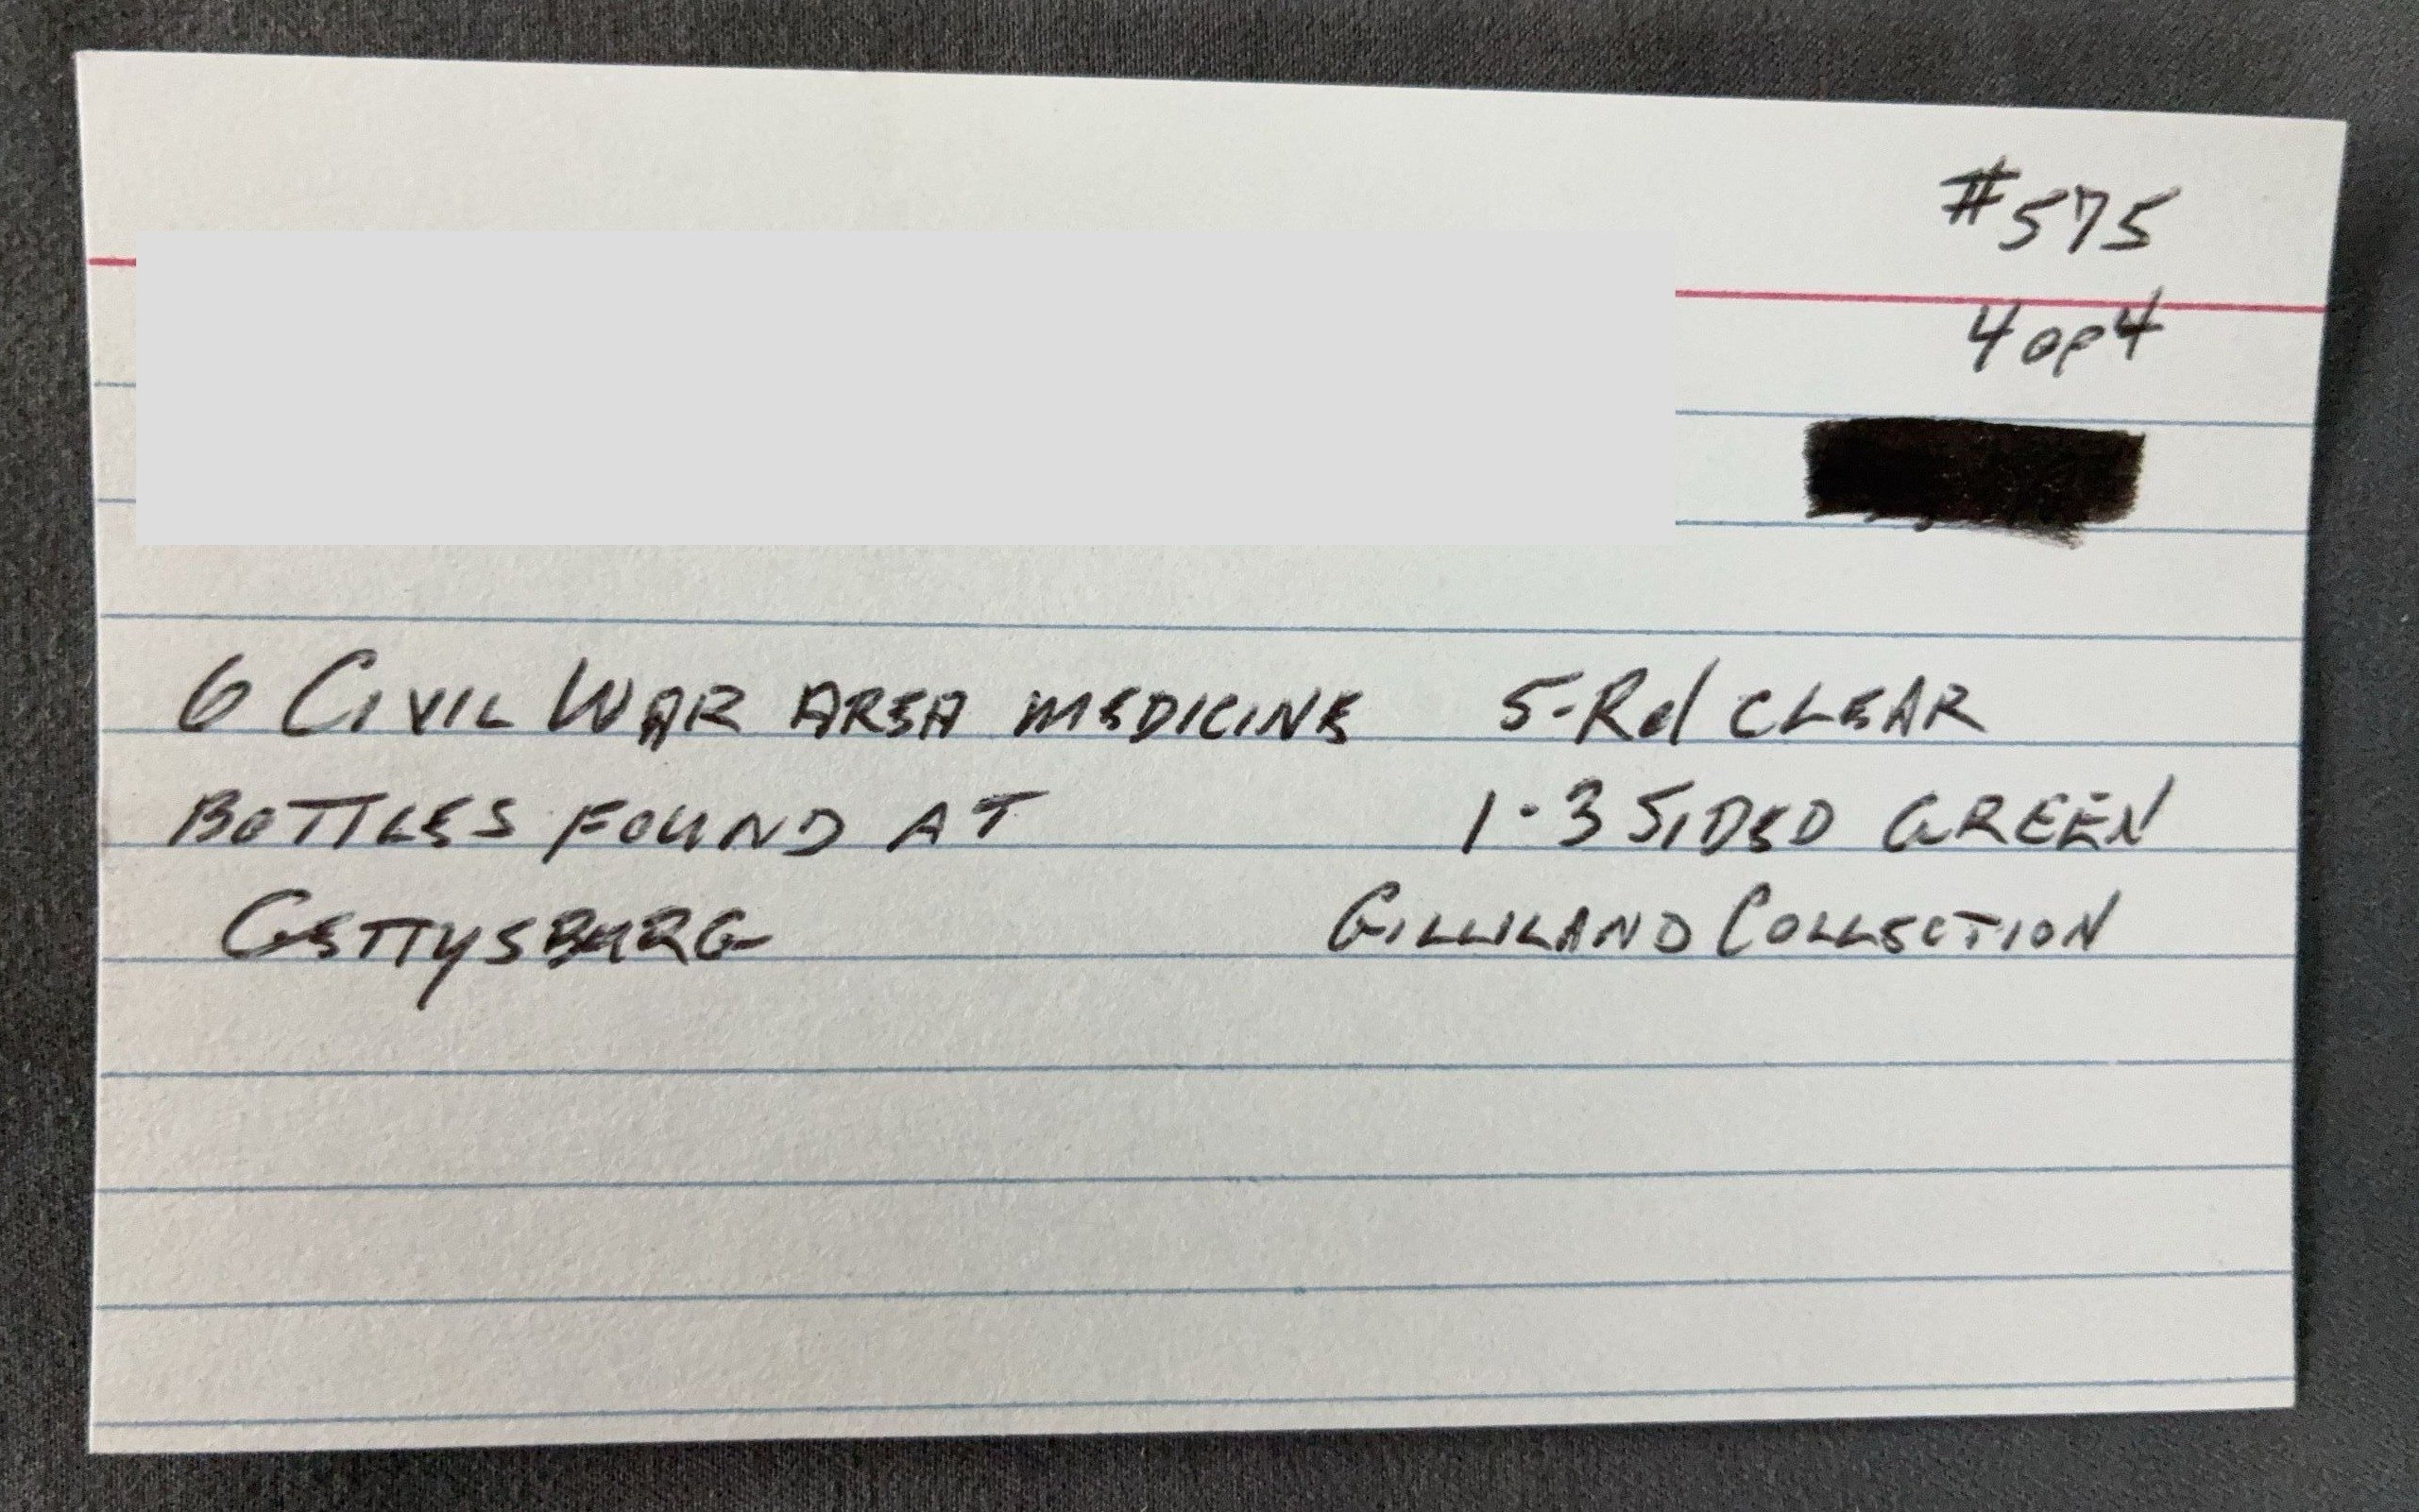 #575
4 OF 4
6 CIVIL WAR AREA MEDICINE 5-Rd CLEAR
BOTTLES FOUND AT 1-3 SIDED GREEN
GETTYSBURG GILLILAND COLLECTION